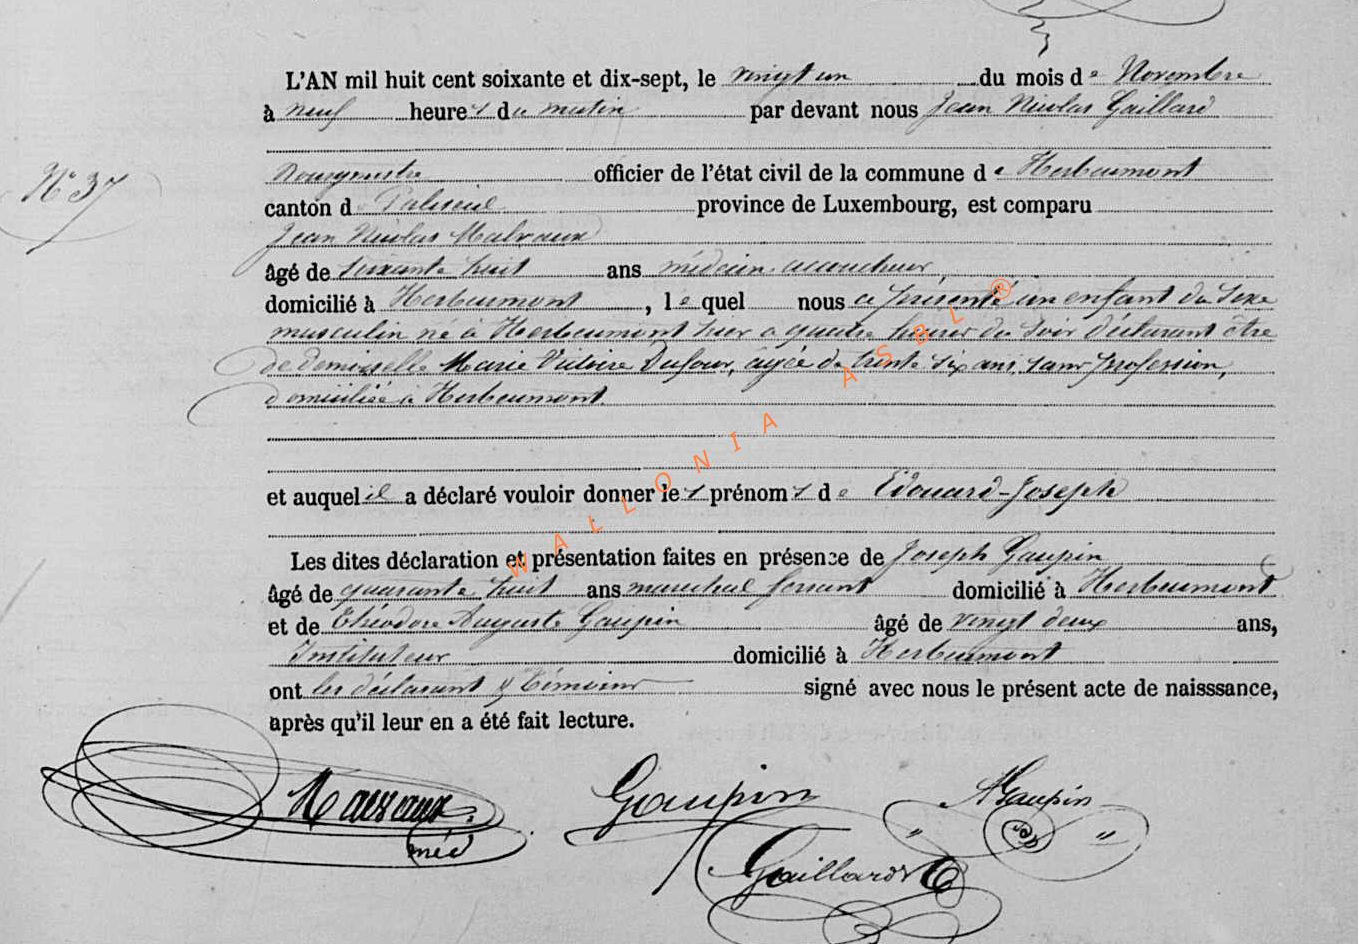 L'AN mil huit cent soixante et dix-sept, le vingt un du mois de Novembre
à neuf heures du matin par devant nous Jean Nicolas Gaillard
N° 37
Bourgmestre officier de l'état civil de la commune de Herbeumont
canton de Paliseul province de Luxembourg, est comparu
Jean Nicolas Malvaux
âgé de soixante huit ans médecin accoucheur,
domicilié à Herbeumont, lequel nous a présenté un enfant du sexe
masculin né à Herbeumont hier à quatre heures du soir déclarant être
de Demoiselle Marie Victoire Dufour, agée de trente six ans, sans profession,
domiciliée à Herbeumont.
et auquel il a déclaré vouloir donner les prénoms de Edouard-Joseph
Les dites déclaration et présentation faites en présence de Joseph Gaupin
âgé de quarante huit ans marechal ferrant domicilié à Herbeumont
et de Théodore Auguste Gaupin âgé de vingt deux ans,
Instituteur domicilié à Herbeumont
ont les déclarant & témoins signé avec nous le présent acte de naisssance,
après qu'il leur en a été fait lecture.
Malvaux Gaupin A Gaupin
méd
Gaillard
WALLONIA ASBL ®